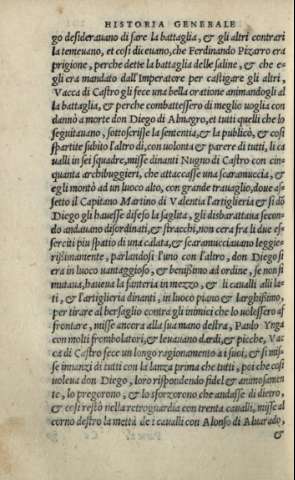 HISTORIA GENERALE
go desiderauano di fare la battaglia, & gli altri contrari
la temeuano, et cosi diceuano, che Ferdinando Pizarro era
prigione, perche dette la battaglia delle saline, & che e-
gli era mandato dall'Imperatore per castigare gli altri,
Vacca di Castro gli fece una bella oratione animandogli al
la battaglia, & perche combattessero di meglio uoglia con
dannò a morte don Diego di Almagro, et tutti quelli che lo
seguitauano, sottoscrisse la sententia, & la publicò, & cosi
spartite subito l'altro dì, con uolontà & parere di tutti, li ca
ualli in sei squadre, misse dinanti Nugno di Castro con cin-
quanta archibuggieri, che attaccasse una scaramuccia, &
egli montò ad un luoco alto, con grande trauaglio, doue as-
settò il Capitano Martino di Valentia l'artiglieria & si dō
Diego gli hauesse difeso la saglita, gli disbarattaua secon-
do andauano disordinati, & stracchi, non cera fra li due es-
serciti piu spatio di una calata, & scaramucciauano leggie-
rissimamente, parlandosi l'uno con l'altro, don Diego si
era in luoco uantaggioso, & benissimo ad ordine, se non si
mutaua, haueua la fanteria in mezzo, & li caualli alli la-
ti, & l'artiglieria dinanti, in luoco piano & larghissimo,
per tirare al bersaglio contra gli inimici che lo uolessero af
frontare, misse ancora alla sua mano destra, Paulo Ynga
con molti frombolatori, & leuauano dardi, & picche, Vac
ca di Castro fece un longo ragionamento a i suoi, & si mis-
se innanzi di tutti con la lanza prima che tutti, poi che cosi
uoleua don Diego, loro rispondendo fidel & animosamen
te, lo pregorono, & lo sforzorono che andasse di dietro,
& cosi restò nella retroguardia con trenta caualli, misse al
corno destro la mettà de i caualli con Alonso di Aluarado,
&